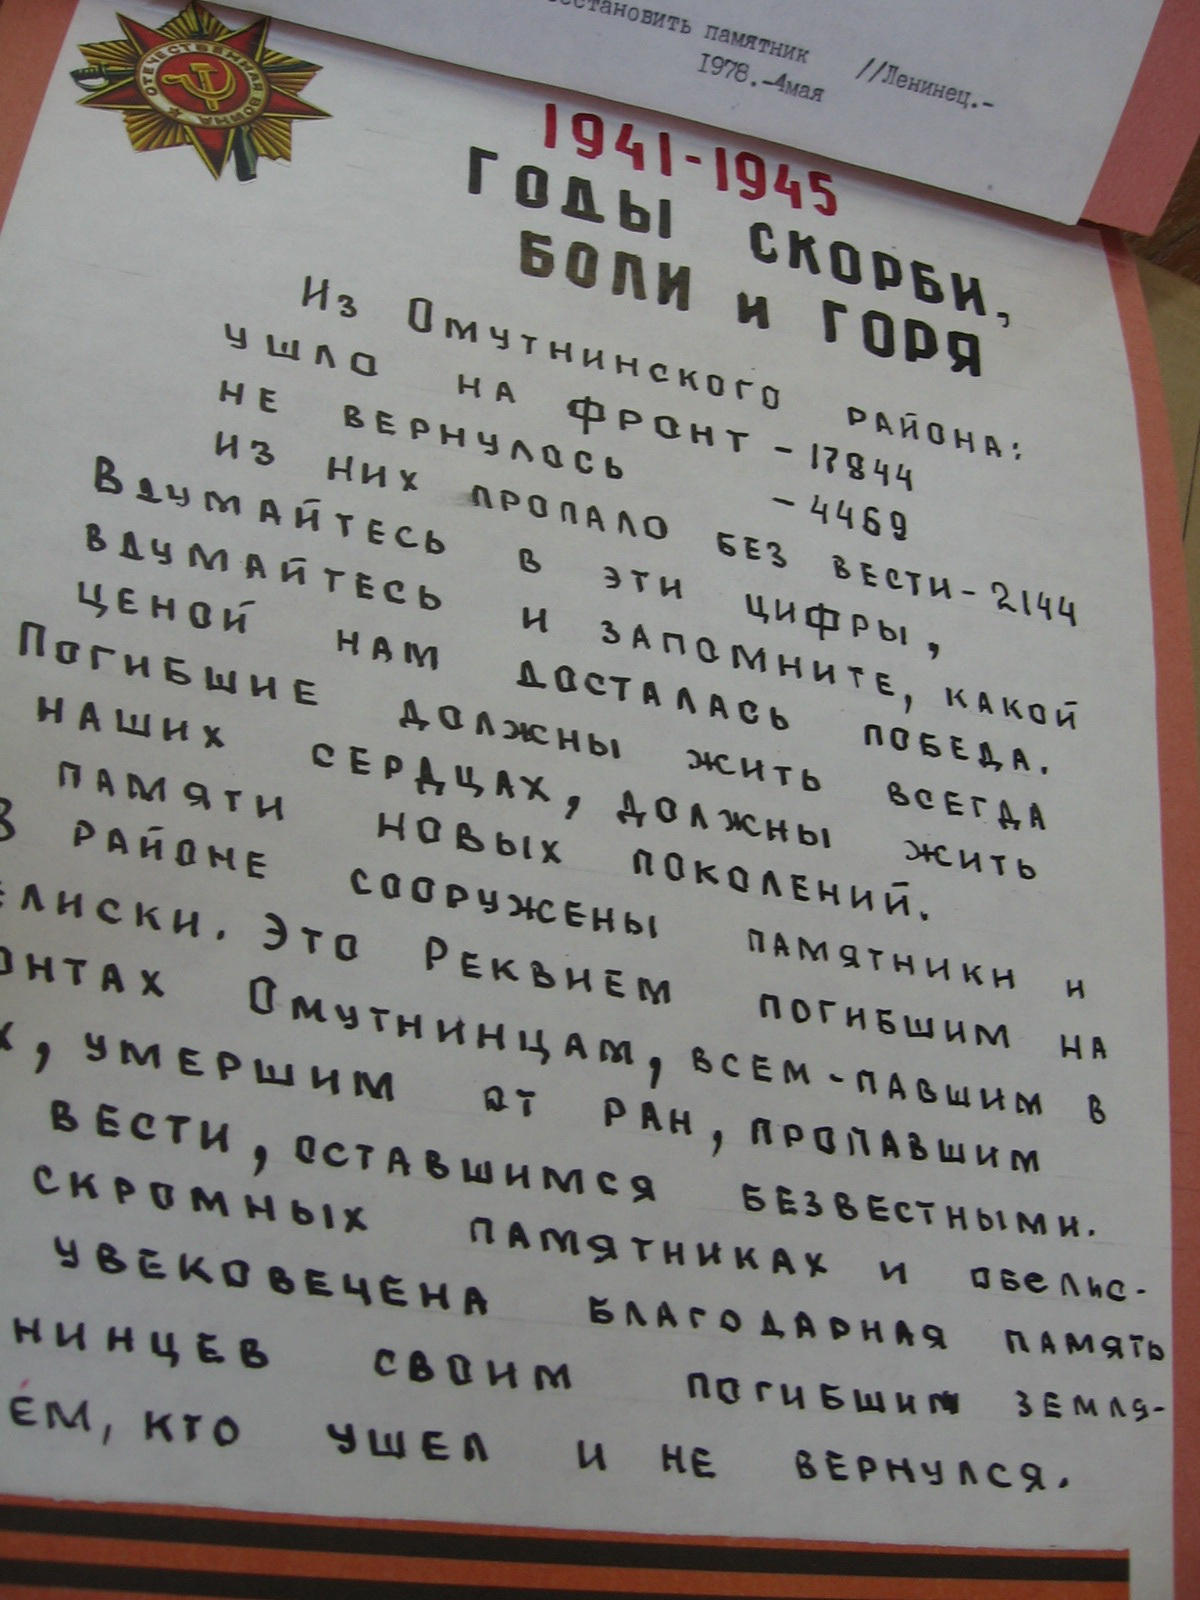 становить памятник //Ленинец.-
1978.-4мая
ОТЕЧЕСТВЕННАЯ ВОЙНА
1941-1945
ГОДЫ СКОРБИ,
БОЛИ И ГОРЯ
Из Омутнинского района:
ушло на фронт - 17844
не вернулось - 4469
из них пропало без вести - 2144
Вдумайтесь в эти цифры,
вдумайтесь и запомните, какой
ценой нам досталась победа.
Погибшие должны жить всегда
наших сердцах, должны жить
памяти новых поколений.
В районе сооружены памятники и
елиски. Это Реквием погибшим на
онтах Омутнинцам, всем - павшим в
х, умершим от ран, пропавшим
вести, оставшимся безвестными.
скромных памятниках и обелис-
увековечена благодарная память
нинцев своим погибшим земля-
ем, кто ушел и не вернулся.